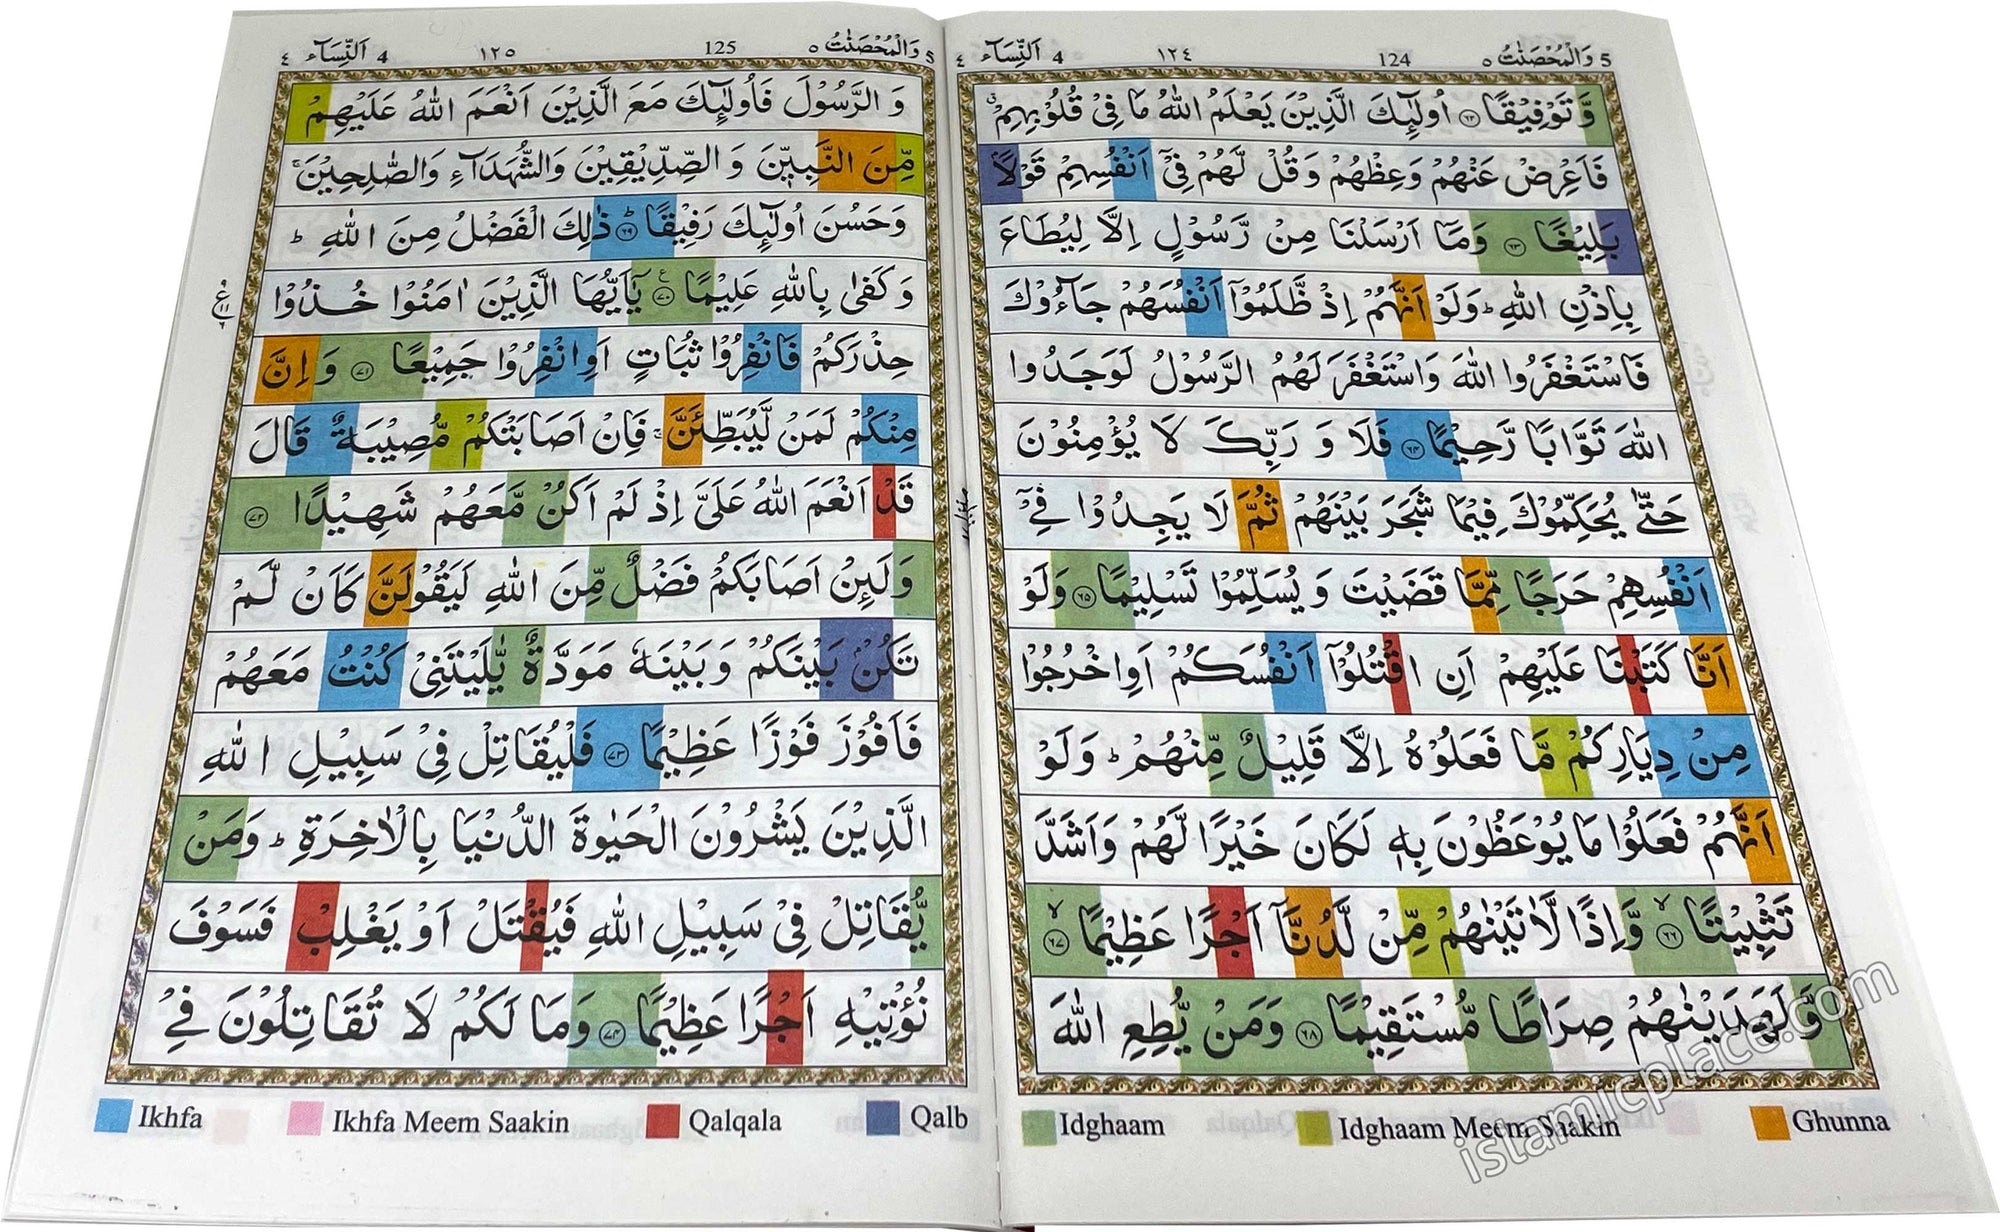 5 وَالْمُحْصَنٰتُ ٥
124
١٢٤
4 اَلنِّسَآء ٤
وَّ تَوْفِيْقًا ﴿٦٢﴾ اُولٰٓئِكَ الَّذِيْنَ يَعْلَمُ اللّٰهُ مَا فِيْ قُلُوْبِهِمْ ۗ
فَاَعْرِضْ عَنْهُمْ وَعِظْهُمْ وَقُلْ لَّهُمْ فِيْٓ اَنْفُسِهِمْ قَوْلًاۢ
بَلِيْغًا ﴿٦٣﴾ وَمَآ اَرْسَلْنَا مِنْ رَّسُوْلٍ اِلَّا لِيُطَاعَ
بِاِذْنِ اللّٰهِ ؕ وَلَوْ اَنَّهُمْ اِذْ ظَّلَمُوْٓا اَنْفُسَهُمْ جَآءُوْكَ
فَاسْتَغْفَرُوا اللّٰهَ وَاسْتَغْفَرَ لَهُمُ الرَّسُوْلُ لَوَجَدُوا
اللّٰهَ تَوَّابًا رَّحِيْمًا ﴿٦٤﴾ فَلَا وَ رَبِّكَ لَا يُؤْمِنُوْنَ
حَتّٰى يُحَكِّمُوْكَ فِيْمَا شَجَرَ بَيْنَهُمْ ثُمَّ لَا يَجِدُوْا فِيْٓ
اَنْفُسِهِمْ حَرَجًا مِّمَّا قَضَيْتَ وَ يُسَلِّمُوْا تَسْلِيْمًا ﴿٦٥﴾ وَلَوْ
اَنَّا كَتَبْنَا عَلَيْهِمْ اَنِ اقْتُلُوْٓا اَنْفُسَكُمْ اَوِ اخْرُجُوْا
مِنْ دِيَارِكُمْ مَّا فَعَلُوْهُ اِلَّا قَلِيْلٌ مِّنْهُمْ ؕ وَلَوْ
اَنَّهُمْ فَعَلُوْا مَا يُوْعَظُوْنَ بِهٖ لَكَانَ خَيْرًا لَّهُمْ وَاَشَدَّ
تَثْبِيْتًا ﴿٦٦﴾ وَّاِذًا لَّاٰتَيْنٰهُمْ مِّنْ لَّدُنَّآ اَجْرًا عَظِيْمًا ﴿٦٧﴾
وَّلَهَدَيْنٰهُمْ صِرَاطًا مُّسْتَقِيْمًا ﴿٦٨﴾ وَمَنْ يُّطِعِ اللّٰهَ
Idghaam
Idghaam Meem Saakin
Ghunna
5 وَالْمُحْصَنٰتُ ٥
125
١٢٥
4 اَلنِّسَآء ٤
وَ الرَّسُوْلَ فَاُولٰٓئِكَ مَعَ الَّذِيْنَ اَنْعَمَ اللّٰهُ عَلَيْهِمْ
مِّنَ النَّبِيّٖنَ وَ الصِّدِّيْقِيْنَ وَالشُّهَدَآءِ وَالصّٰلِحِيْنَ ۚ
وَحَسُنَ اُولٰٓئِكَ رَفِيْقًا ﴿٦٩﴾ ؕ ذٰلِكَ الْفَضْلُ مِنَ اللّٰهِ ؕ
وَ كَفٰى بِاللّٰهِ عَلِيْمًا ﴿٧٠﴾ يٰٓاَيُّهَا الَّذِيْنَ اٰمَنُوْا خُذُوْا
حِذْرَكُمْ فَانْفِرُوْا ثُبَاتٍ اَوِ انْفِرُوْا جَمِيْعًا ﴿٧١﴾ وَ اِنَّ
مِنْكُمْ لَمَنْ لَّيُبَطِّئَنَّ ۚ فَاِنْ اَصَابَتْكُمْ مُّصِيْبَةٌ قَالَ
قَدْ اَنْعَمَ اللّٰهُ عَلَيَّ اِذْ لَمْ اَكُنْ مَّعَهُمْ شَهِيْدًا ﴿٧٢﴾
وَلَئِنْ اَصَابَكُمْ فَضْلٌ مِّنَ اللّٰهِ لَيَقُوْلَنَّ كَاَنْ لَّمْ
تَكُنْۢ بَيْنَكُمْ وَ بَيْنَهٗ مَوَدَّةٌ يّٰلَيْتَنِيْ كُنْتُ مَعَهُمْ
فَاَفُوْزَ فَوْزًا عَظِيْمًا ﴿٧٣﴾ فَلْيُقَاتِلْ فِيْ سَبِيْلِ اللّٰهِ
الَّذِيْنَ يَشْرُوْنَ الْحَيٰوةَ الدُّنْيَا بِالْاٰخِرَةِ ؕ وَمَنْ
يُّقَاتِلْ فِيْ سَبِيْلِ اللّٰهِ فَيُقْتَلْ اَوْ يَغْلِبْ فَسَوْفَ
نُؤْتِيْهِ اَجْرًا عَظِيْمًا ﴿٧٤﴾ وَمَا لَكُمْ لَا تُقَاتِلُوْنَ فِيْ
Ikhfa
Ikhfa Meem Saakin
Qalqala
Qalb
islamicplace.com